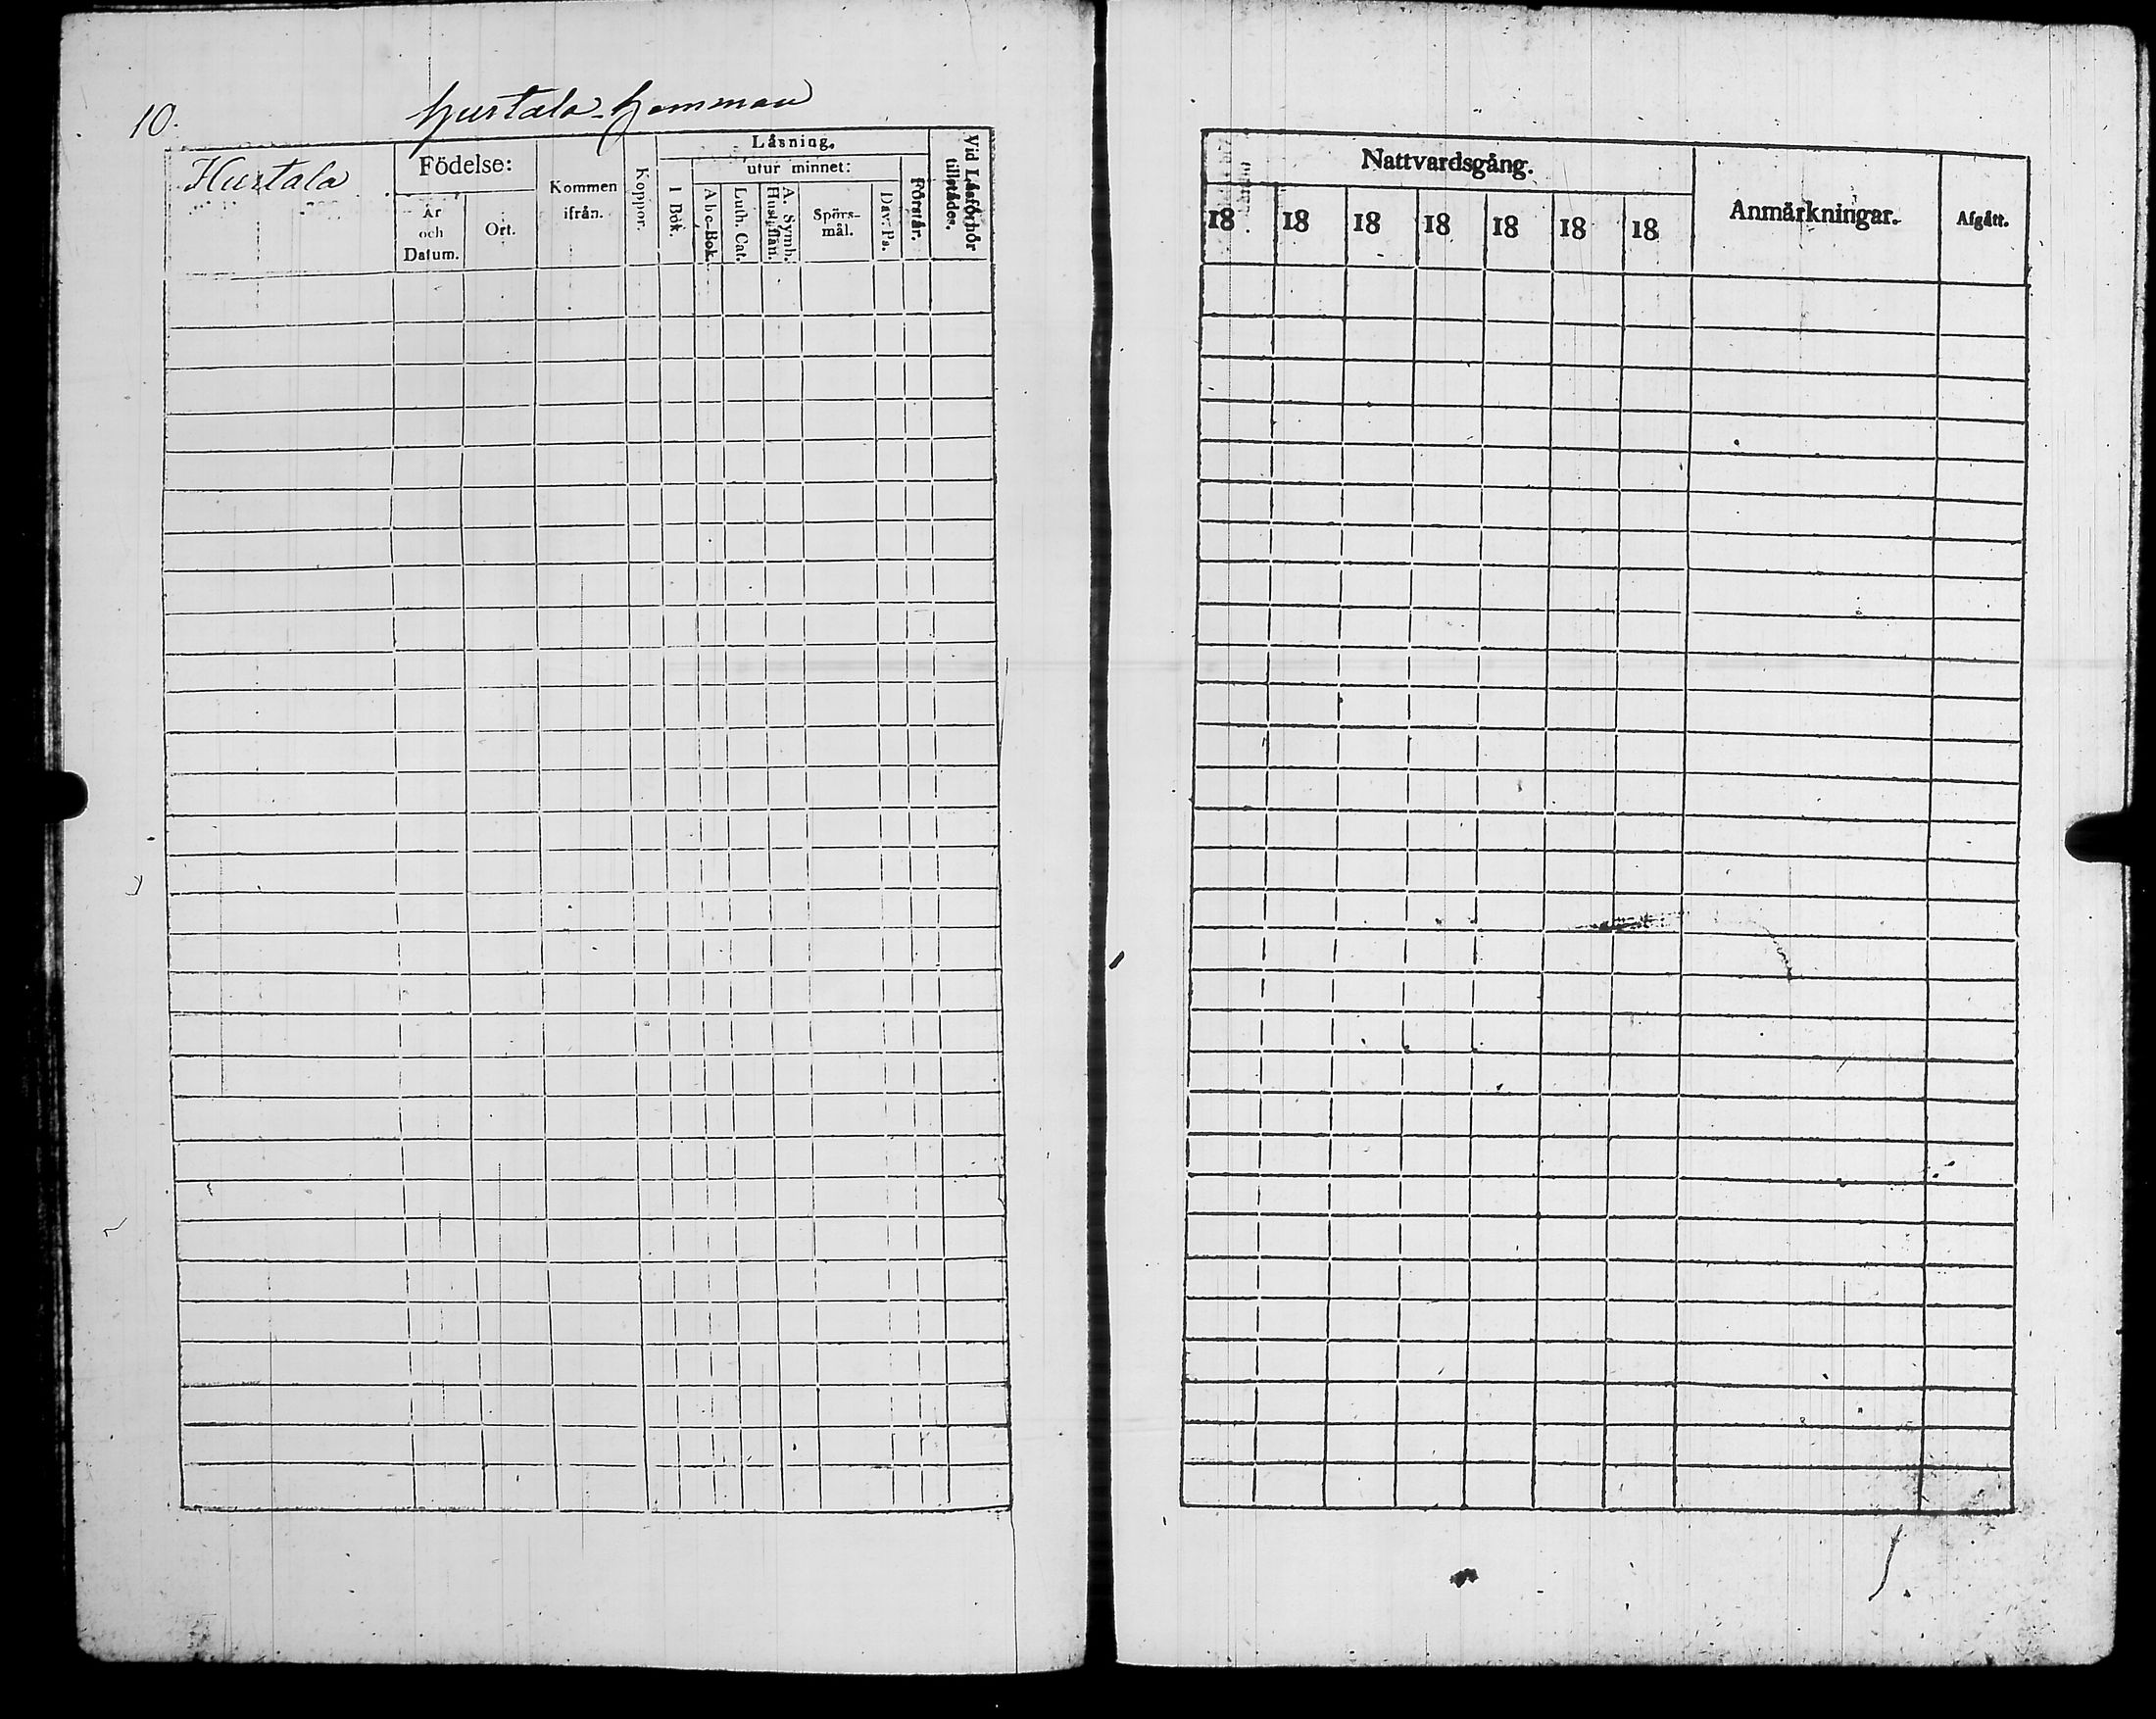 10.
Hurtala hemman
Hurtala
Födelse:
År och Datum.
Ort.
Kommen ifrån.
Koppor.
Låsning.
I Bok.
utur minnet:
Abc-Bok.
Luth. Cat.
A. Symb. Hustaflan.
Spörs-
mål.
Dav. Ps.
Förstår.
Vid Låsförhör
tillstådes.
Nattvardsgång.
18 18 18 18 18 18 18
Anmärkningar.
Afgått.